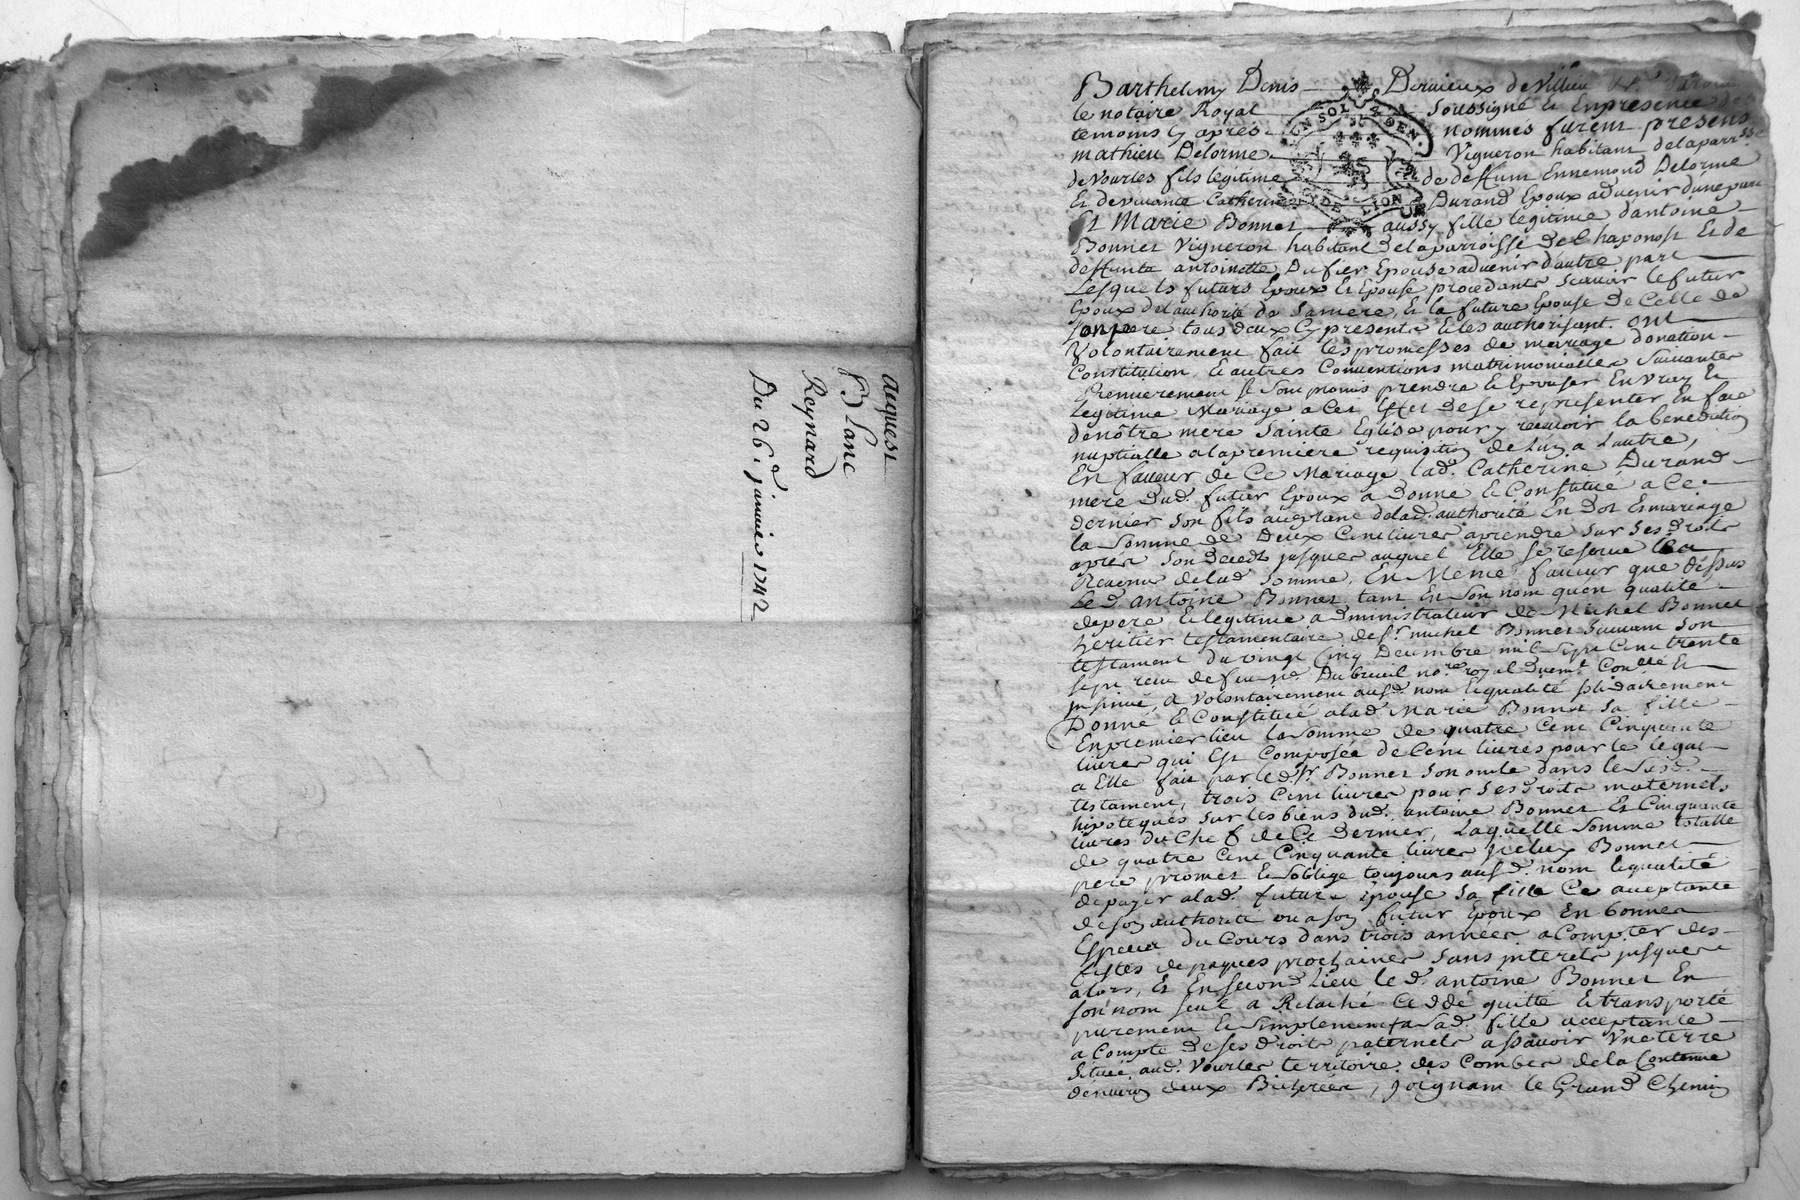 acquest
Blanc
Reynard
Du 26.e janvier 1742
Barthelemy Denis Dervieux de Villieu
le notaire Royal soussigné et Enpresence des
temoins Cy aprés nommés furent presens
mathieu Delorme Vigneron habitant delaparr.sse
de Vourles fils legitime de deffunt Ennemond Delorme
Et de vivante Catherine Durand Epoux advenir d'une part
Et Marie Bonnet aussy fille legitime d'antoine
Bonnet Vigneron habitant delaparroisse de Chaponost Et de
deffunte antoinette Dufier Epouse advenir d'autre part
Lesquels futurs Epoux et Epouse procedants scavoir le futur
Epoux del'authorité de Samere, et la future Epouse de Celle de
Sonpere tous deux Cy presents et les authorisant ont
Volontairement fait les promesses de mariage donation
Constitution, et autres Conventions matrimonialles Suivantes
Premierement se sont promis prendre et Epouser En vray et
Legitime Mariage a Cet Effet de se representer En face
de nôtre mere Sainte Eglise pour y recevoir la benediction
nuptialle alapremiere requisition de Lun a Lautre,
En faveur de Ce Mariage lad. Catherine Durand
mere dud. futur Epoux a Donné et Constitué a Ce
dernier son fils acceptant delad. authorité En Dot Et mariage
la Somme de Deux Cent livres aprendre sur ses droits
aprés son Deceds jusques auquel Elle se reserve les
Revenus delad. somme. En Meme faveur que dessus
Le d. antoine Bonnet tant En son nom qu'en qualité
depere et legitime administrateur de Michel Bonnet
heritier testamentaire de s.r michel Bonnet suivant son
testament du vingt Cinq Decembre mil sept cent trente
sept recu de feu m.e Dubreuil no.re royal duem.t Con.llé et
insinué, a Volontairement ausd. nom et qualité solidairement
Donné et Constitué alad. Marie Bonnet sa fille
Enpremier lieu la somme de quatre Cent Cinquante
livres qui Est Composée de Cent livres pour le legat
a Elle fait par led. s.r Bonnet son oncle dans le susd.
testament, trois Cent livres pour ses droits maternels
hipotequés sur les biens dud. antoine Bonnet Et Cinquante
livres du Chef de Ce Dernier, Laquelle Somme totalle
de quatre Cent Cinquante livres icelux Bonnet
pere promet et s'oblige toujours ausd. nom et qualité
de payer alad. future Epouse sa fille Ce acceptante
de son authorité ou a son futur Epoux En bonnes
Especes du Cours dans trois années a Compter des
festes de paques prochaines sans interets jusques
alors, Et En second Lieu le d. antoine Bonnet En
son nom seul a Relaché Cedé quitté et transporté
purement et Simplement a Sad. fille acceptante
a Compte de ses droits paternels assavoir Vne terre
Située aud. Vourles territoire des Combes de la Contenue
denviron deux Bicherées, Joignant le Grand Chemin